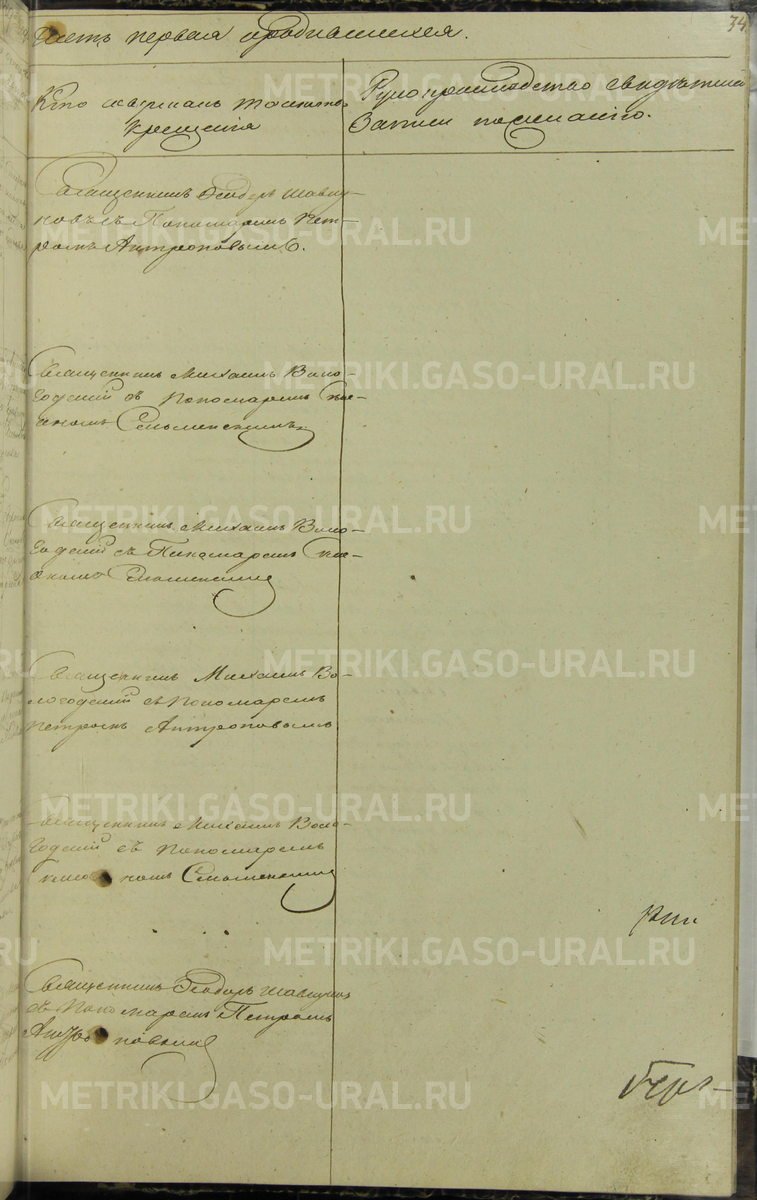 34
Часть первая о родившихся.
Кто совершалъ таинство
крещенія
Рукоприкладство свидѣтелей
записи по желанію.
Священникъ Феодоръ Шавку-
новъ съ Пономаремъ Пет-
ромъ Антроповымъ.
Священникъ Михаилъ Воло-
годскій съ Пономаремъ
Смоленскимъ
Священникъ Михаилъ Воло-
годскій съ Пономаремъ
Смоленскимъ
Священникъ Михаилъ Во-
логодскій съ Пономаремъ
Петромъ Антроповымъ
Священникъ Михаилъ Воло-
годскій съ Пономаремъ
Смоленскимъ
Священникъ Феодоръ Шавкуновъ
съ Пономаремъ Петромъ
Антроповымъ
METRIKI.GASO-URAL.RU